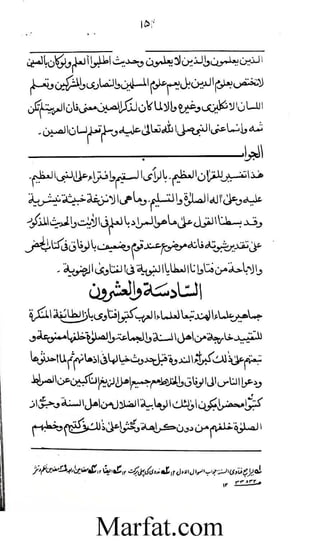 ١٥
الذين يعلمون والذين لا يعلمون وحديث اطلبوا العلم ولوكان بالصين
لا تختص بعلوم الدين بل يعم علوم المسلمين والنصارى والمشركين وتعلم
اللسان الانكليزى وغيره والا لما كان لذكر الصين معنى فان العربية لم تكن
ثمه وانما عنى النبى صلى الله تعالى عليه وسلم تعلم لسان الصين۔
الجواب
هذا تفسير للقرآن العظيم۔ بالرأى السقيم وافتراء على النبى العظيم۔
عليه وعلى آله الصلوة والتسليم۔ وما هى الا نزغة خبيثة نيشرية
وقد بسطنا القول على ما هو المراد بالعلم فى الآيات والحديث المذكور
على تقدير ثبوته فانه موضوع عند قوم وضعيف بالوفاق فى كتاب الحظر
والاباحة من فتاوانا العطايا النبوية فى الفتاوى الرضوية۔
السادسة والعشرون
جماهير علماء الهند تبعا لعلماء العرب كتبوا فتاوى بان الطائفة المنكرة
للتقييد خارجة من اهل السنة والجماعة والصلوة خلفها ممنوعة و
تبعهم على ذلك كبراء الندوة قبل حدوث خيالها فى اذهانهم ثم لما احدثوها
ودعوا الناس الى الوفاق والخلاط مع جميع اهل الزيغ الناكبين عن الصراط
كتبوا محضرا بكون اولئك الوهابية الضلال من اهل السنة وحقق از
الصلوة خلفهم من دون كراهة وختموا على ذلك وكتبهم وخطبهم
Marfat.com